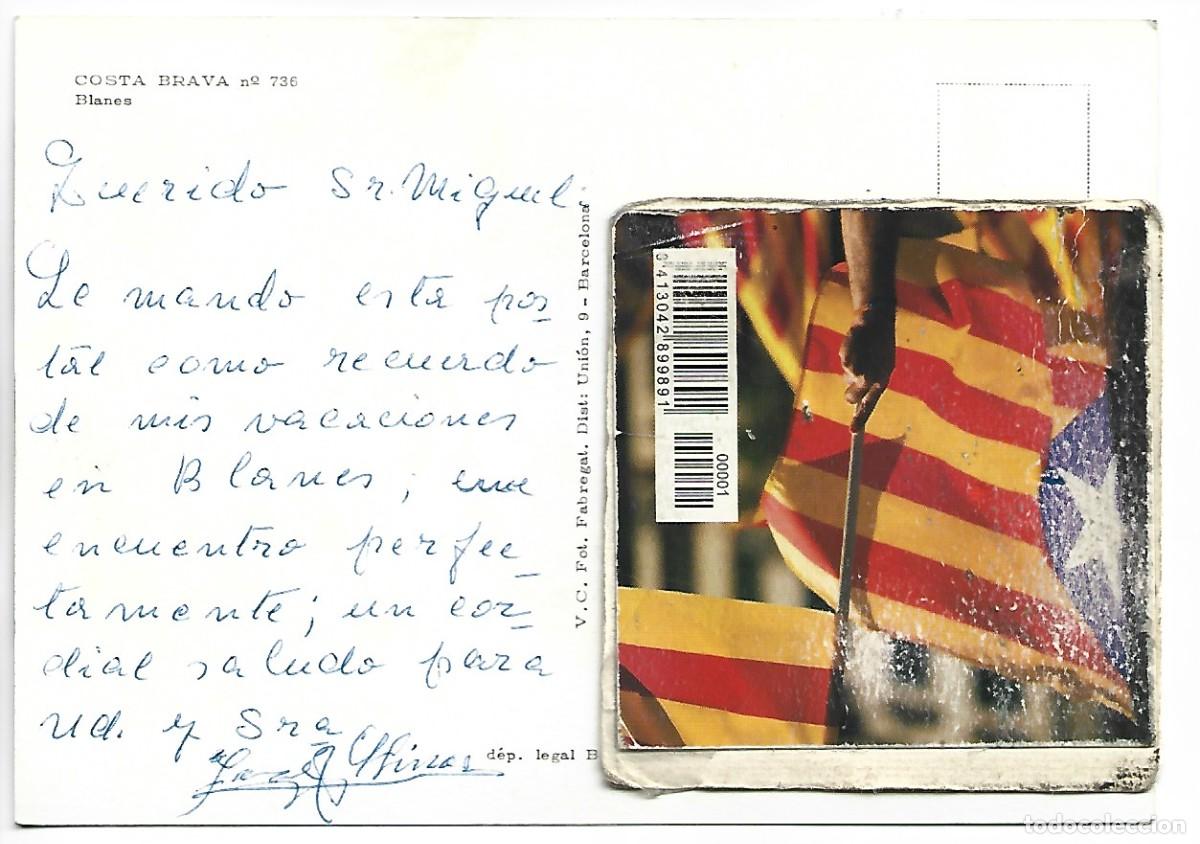 COSTA BRAVA nº 736
Blanes
Querido Sr. Miguel:
Le mando esta pos-
tal como recuerdo
de mis vacaciones
en Blanes; me
encuentro perfec-
tamente; un cor-
dial saludo para
Ud. y Sra
V. C. Fot. Fabregat. Dist: Unión, 9 - Barcelona
dép. legal B
8 413042 899891
00001
todocoleccion